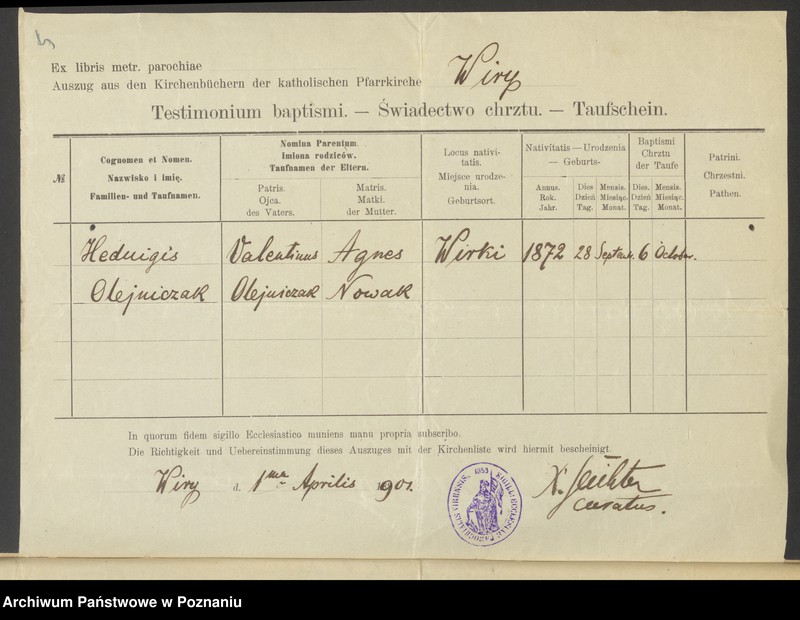 Ex libris metr. parochiae
Auszug aus den Kirchenbüchern der katholischen Pfarrkirche Wiry
Testimonium baptismi. — Świadectwo chrztu. — Taufschein.
№
Cognomen et Nomen.
Nazwisko i imię.
Familien- und Taufnamen.
Nomina Parentum.
Imiona rodziców.
Taufnamen der Eltern.
Patris.
Ojca.
des Vaters.
Matris.
Matki.
der Mutter.
Locus nativi-
tatis.
Miejsce urodze-
nia.
Geburtsort.
Nativitatis — Urodzenia
— Geburts-
Annus.
Rok.
Jahr.
Dies
Dzień
Tag.
Mensis.
Miesiąc.
Monat.
Baptismi
Chrztu
der Taufe
Dies.
Dzień
Tag.
Mensis.
Miesiąc.
Monat.
Patrini.
Chrzestni.
Pathen.
Hedwigis Valentinus Agnes Wirki 1872 28 6
Olejniczak Olejniczak Nowak
In quorum fidem sigillo Ecclesiastico muniens manu propria subscribo.
Die Richtigkeit und Uebereinstimmung dieses Auszuges mit der Kirchenliste wird hiermit bescheinigt.
Wiry d. 1ma Aprilis 1901.
curatus.
1853
SIGILL: ECCLESIAE PAROCHIALIS VIRENSIS
Archiwum Państwowe w Poznaniu